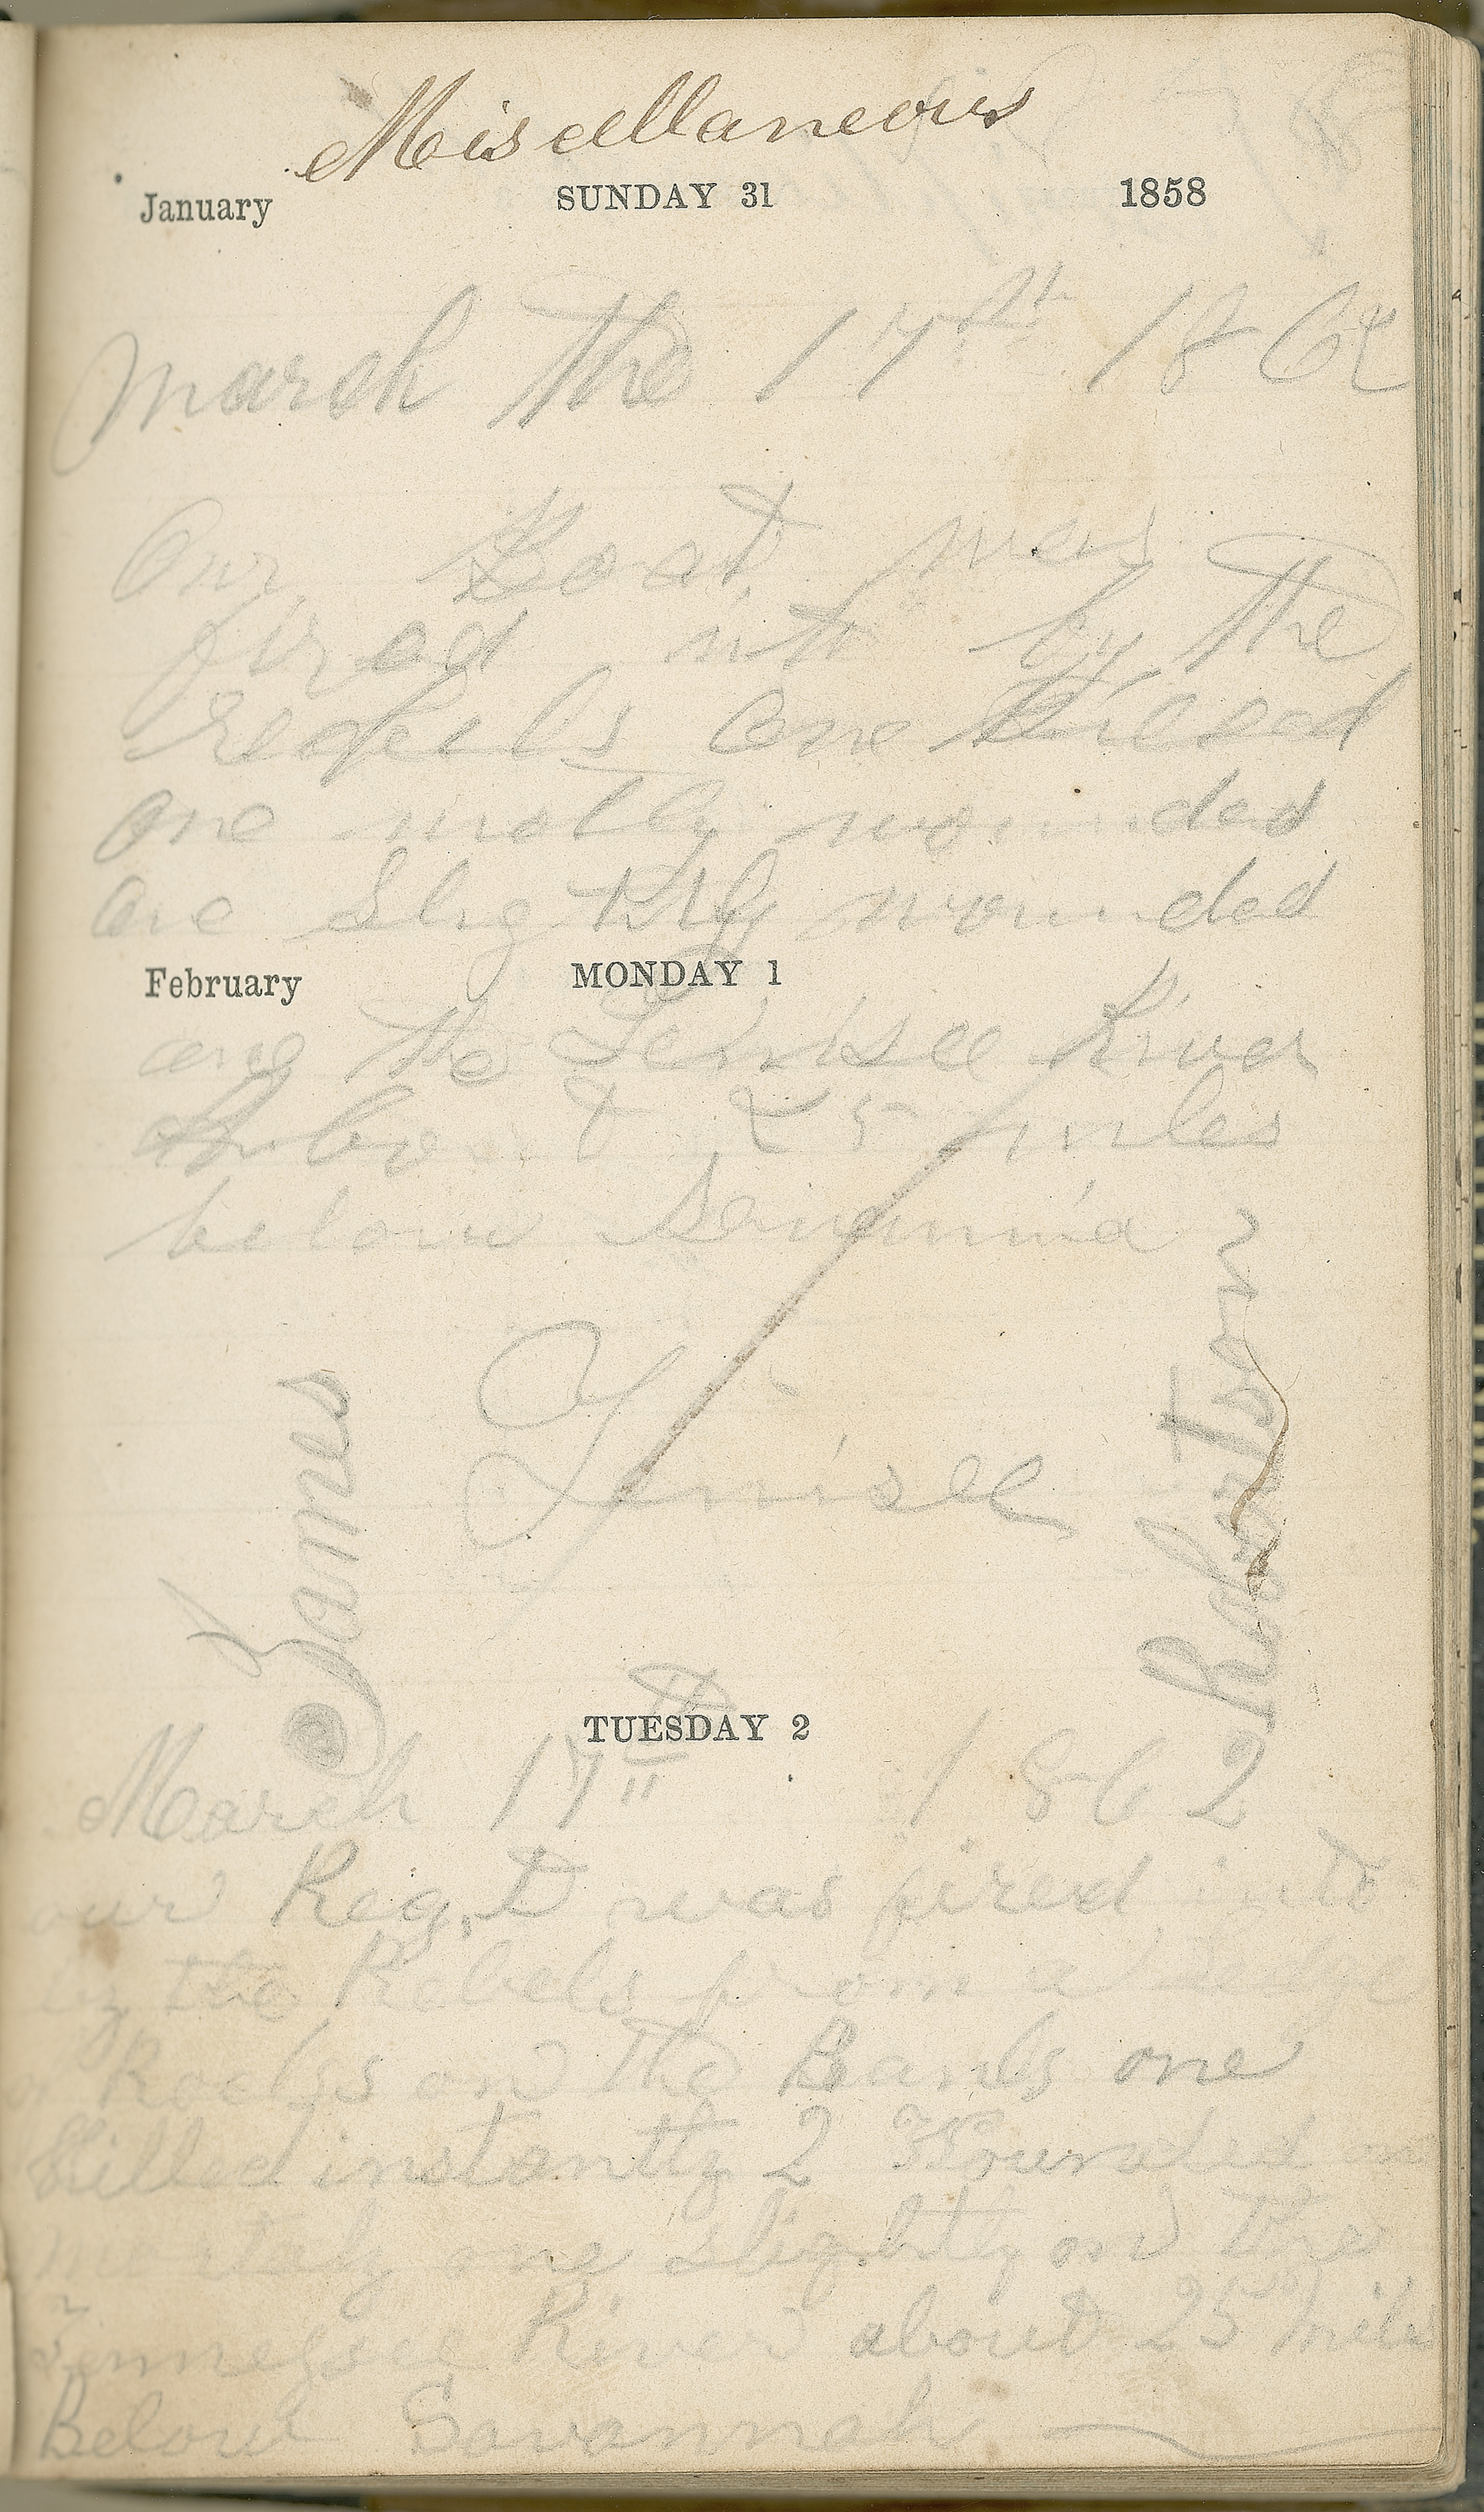 Miscellaneous
January SUNDAY 31 1858
March the 17th 1862
Our Boat was
fired into by the
Rebels one kiled
one motly wounded
one Slightly wounded
February MONDAY 1
one the Tenisee River
About 25 miles
below Savanna
Tenisee
James
Robertson
TUESDAY 2
March 17th 1862
our Reg,t was fired into
by the Rebels from a ledge
of Rocks on the Banks one
killed instantly 2 Wounded one
mortaly one slightly on the
Tennessee River about 25 miles
Below Savannah